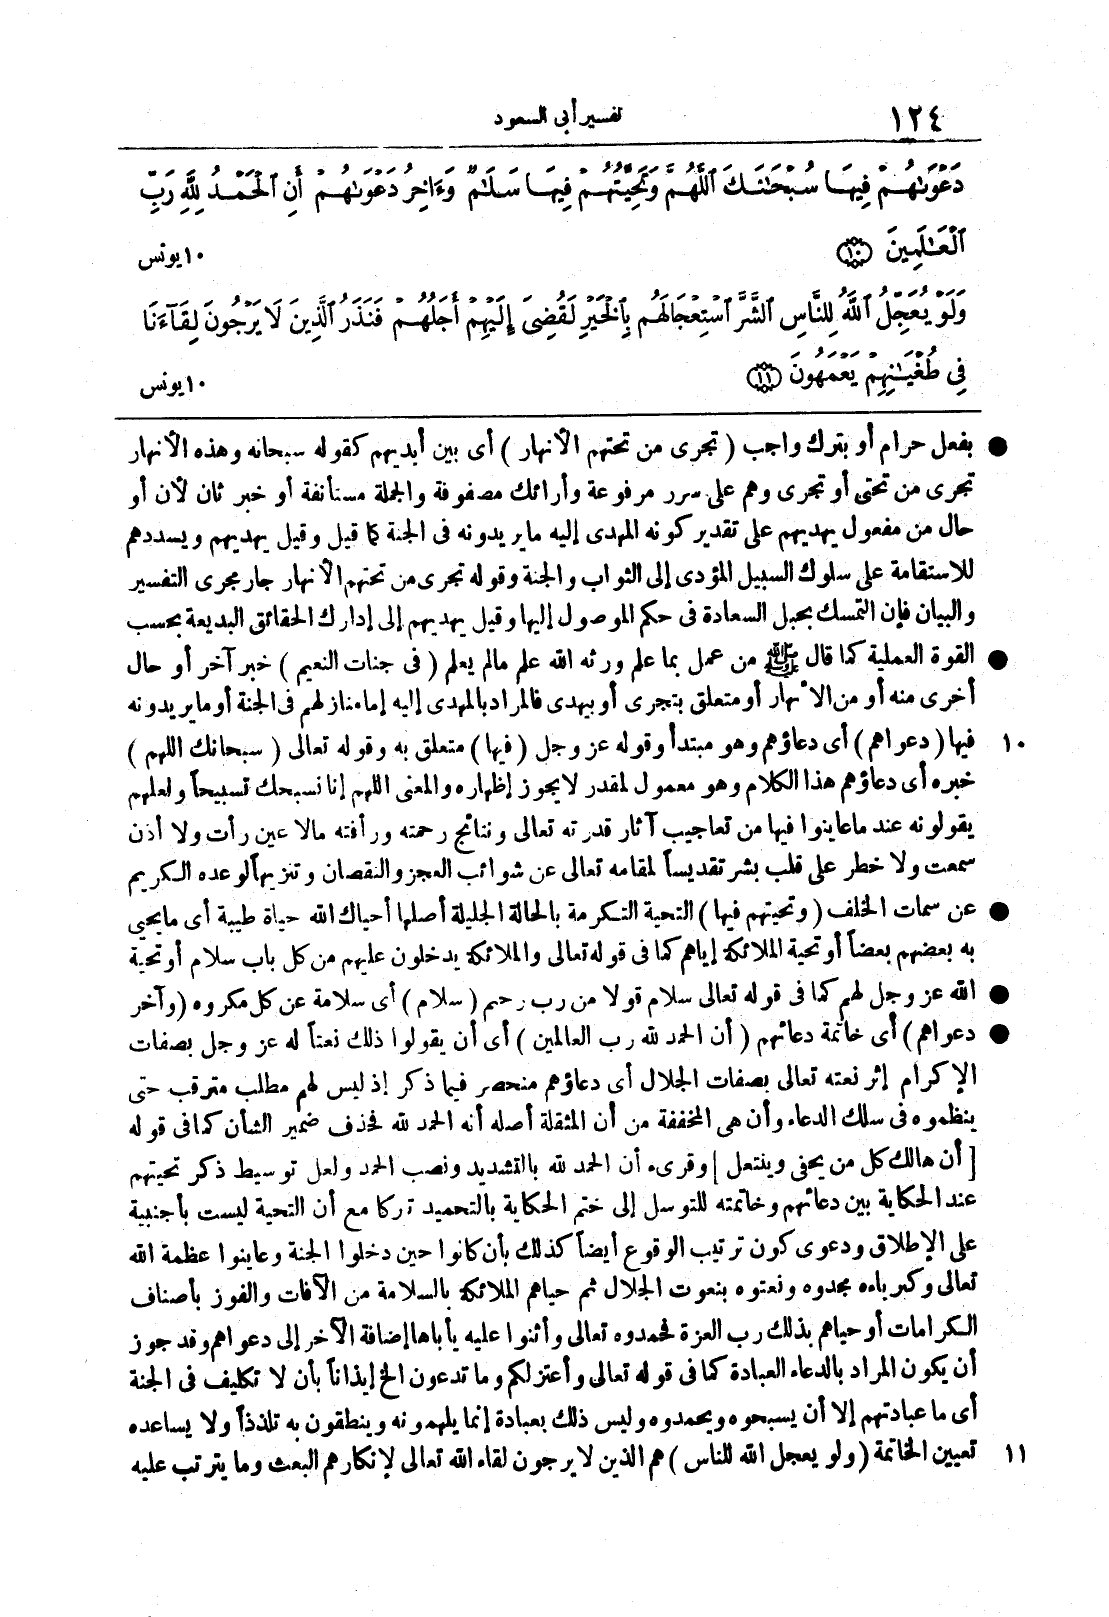 ١٢٤ تفسير أبى السعود
دَعْوَىٰهُمْ فِيهَا سُبْحَـٰنَكَ ٱللَّهُمَّ وَتَحِيَّتُهُمْ فِيهَا سَلَـٰمٌ وَءَاخِرُ دَعْوَىٰهُمْ أَنِ ٱلْحَمْدُ لِلَّهِ رَبِّ
ٱلْعَـٰلَمِينَ ١٠ ١٠ يونس
وَلَوْ يُعَجِّلُ ٱللَّهُ لِلنَّاسِ ٱلشَّرَّ ٱسْتِعْجَالَهُم بِٱلْخَيْرِ لَقُضِىَ إِلَيْهِمْ أَجَلُهُمْ فَنَذَرُ ٱلَّذِينَ لَا يَرْجُونَ لِقَآءَنَا
فِى طُغْيَـٰنِهِمْ يَعْمَهُونَ ١١ ١٠ يونس
● بفعل حرام أو بترك واجب ( تجرى من تحتهم الأنهار ) أى بين أيديهم كقوله سبحانه وهذه الأنهار
تجرى من تحتى أو تجرى وهم على سرر مرفوعة وأرائك مصفوفة والجملة مستأنفة أو خبر ثان لأن أو
حال من مفعول يهديهم على تقدير كونه المهدى إليه ما يريدونه فى الجنة كما قيل وقيل يهديهم ويسددهم
للاستقامة على سلوك السبيل المؤدى إلى الثواب والجنة وقوله تجرى من تحتهم الأنهار جار مجرى التفسير
والبيان فإن التمسك بحبل السعادة فى حكم الموصول إليها وقيل يهديهم إلى إدارك الحقائق البديعة بحسب
● القوة العملية كما قال ﷺ من عمل بما علم ورثه الله علم مالم يعلم ( فى جنات النعيم ) خبر آخر أو حال
أخرى منه أو من الأنهار أو متعلق بتجرى أو بيهدى فالمراد بالمهدى إليه إما منازلهم فى الجنة أو ما يريدونه
١٠ فيها ( دعواهم ) أى دعاؤهم وهو مبتدأ وقوله عز وجل ( فيها ) متعلق به وقوله تعالى ( سبحانك اللهم )
خبره أى دعاؤهم هذا الكلام وهو معمول لمقدر لا يجوز إظهاره والمعنى اللهم إنا نسبحك تسبيحاً ولعلهم
يقولونه عند ما عاينوا فيها من تعاجيب آثار قدرته تعالى ونتائج رحمته ورأفته مالا عين رأت ولا أذن
سمعت ولا خطر على قلب بشر تقديساً لمقامه تعالى عن شوائب العجز والنقصان وتنزيهاً لوعده الكريم
● عن سمات الخلف ( وتحيتهم فيها ) التحية التكرمة بالحالة الجليلة أصلها أحياك الله حياة طيبة أى ما يحيى
به بعضهم بعضاً أو تحية الملائكة إياهم كما فى قوله تعالى والملائكة يدخلون عليهم من كل باب سلام أو تحية
● الله عز وجل لهم كما فى قوله تعالى سلام قولا من رب رحيم ( سلام ) أى سلامة عن كل مكروه ( وآخر
● دعواهم ) أى خاتمة دعائهم ( أن الحمد لله رب العالمين ) أى أن يقولوا ذلك نعتاً له عز وجل بصفات
الإكرام إثر نعته تعالى بصفات الجلال أى دعاؤهم منحصر فيما ذكر إذ ليس لهم مطلب مترقب حتى
ينظموه فى سلك الدعاء وأن هى المخففة من أن المثقلة أصله أنه الحمد لله فحذف ضمير الشأن كما فى قوله
[ أن هالك كل من يحفى وينتعل ] وقرىء أن الحمد لله بالتشديد ونصب الحمد ولعل توسيط ذكر تحيتهم
عند الحكاية بين دعائهم وخاتمته للتوسل إلى ختم الحكاية بالتحميد تركا مع أن التحية ليست بأجنبية
على الإطلاق ودعوى كون ترتيب الوقوع أيضاً كذلك بأن كانوا حين دخلوا الجنة وعاينوا عظمة الله
تعالى وكبرياءه مجدوه ونعتوه بنعوت الجلال ثم حياهم الملائكة بالسلامة من الآفات والفوز بأصناف
الكرامات أو حياهم بذلك رب العزة فحمدوه تعالى وأثنوا عليه يأباها إضافة الآخر إلى دعواهم وقد جوز
أن يكون المراد بالدعاء العبادة كما فى قوله تعالى وأعتزلكم وما تدعون الخ إيذاناً بأن لا تكليف فى الجنة
أى ما عبادتهم إلا أن يسبحوه ويحمدوه وليس ذلك بعبادة إنما يلهمونه وينطقون به تلذذاً ولا يساعده
١١ تعيين الخاتمة ( ولو يعجل الله للناس ) هم الذين لا يرجون لقاء الله تعالى لإنكارهم البعث وما يترتب عليه